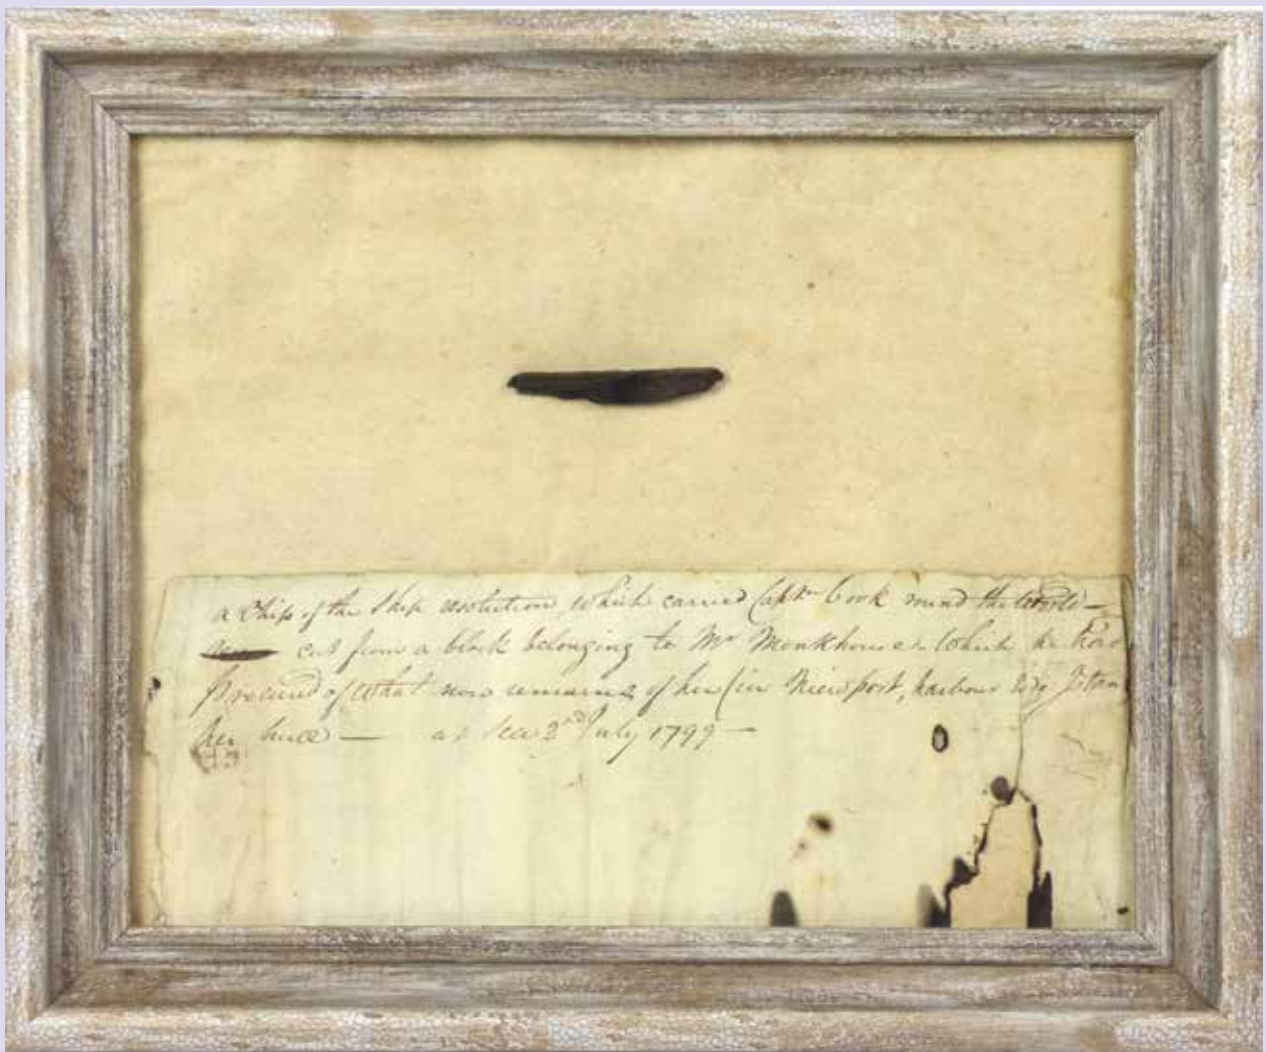 a Chip of the Ship resolution which carried Captn Cook round the World —
cut from a block belonging to Mr Monkhouse which he has
procured of what now remains of her (in Newport, harbour
her — at Sea 2nd July 1799 —